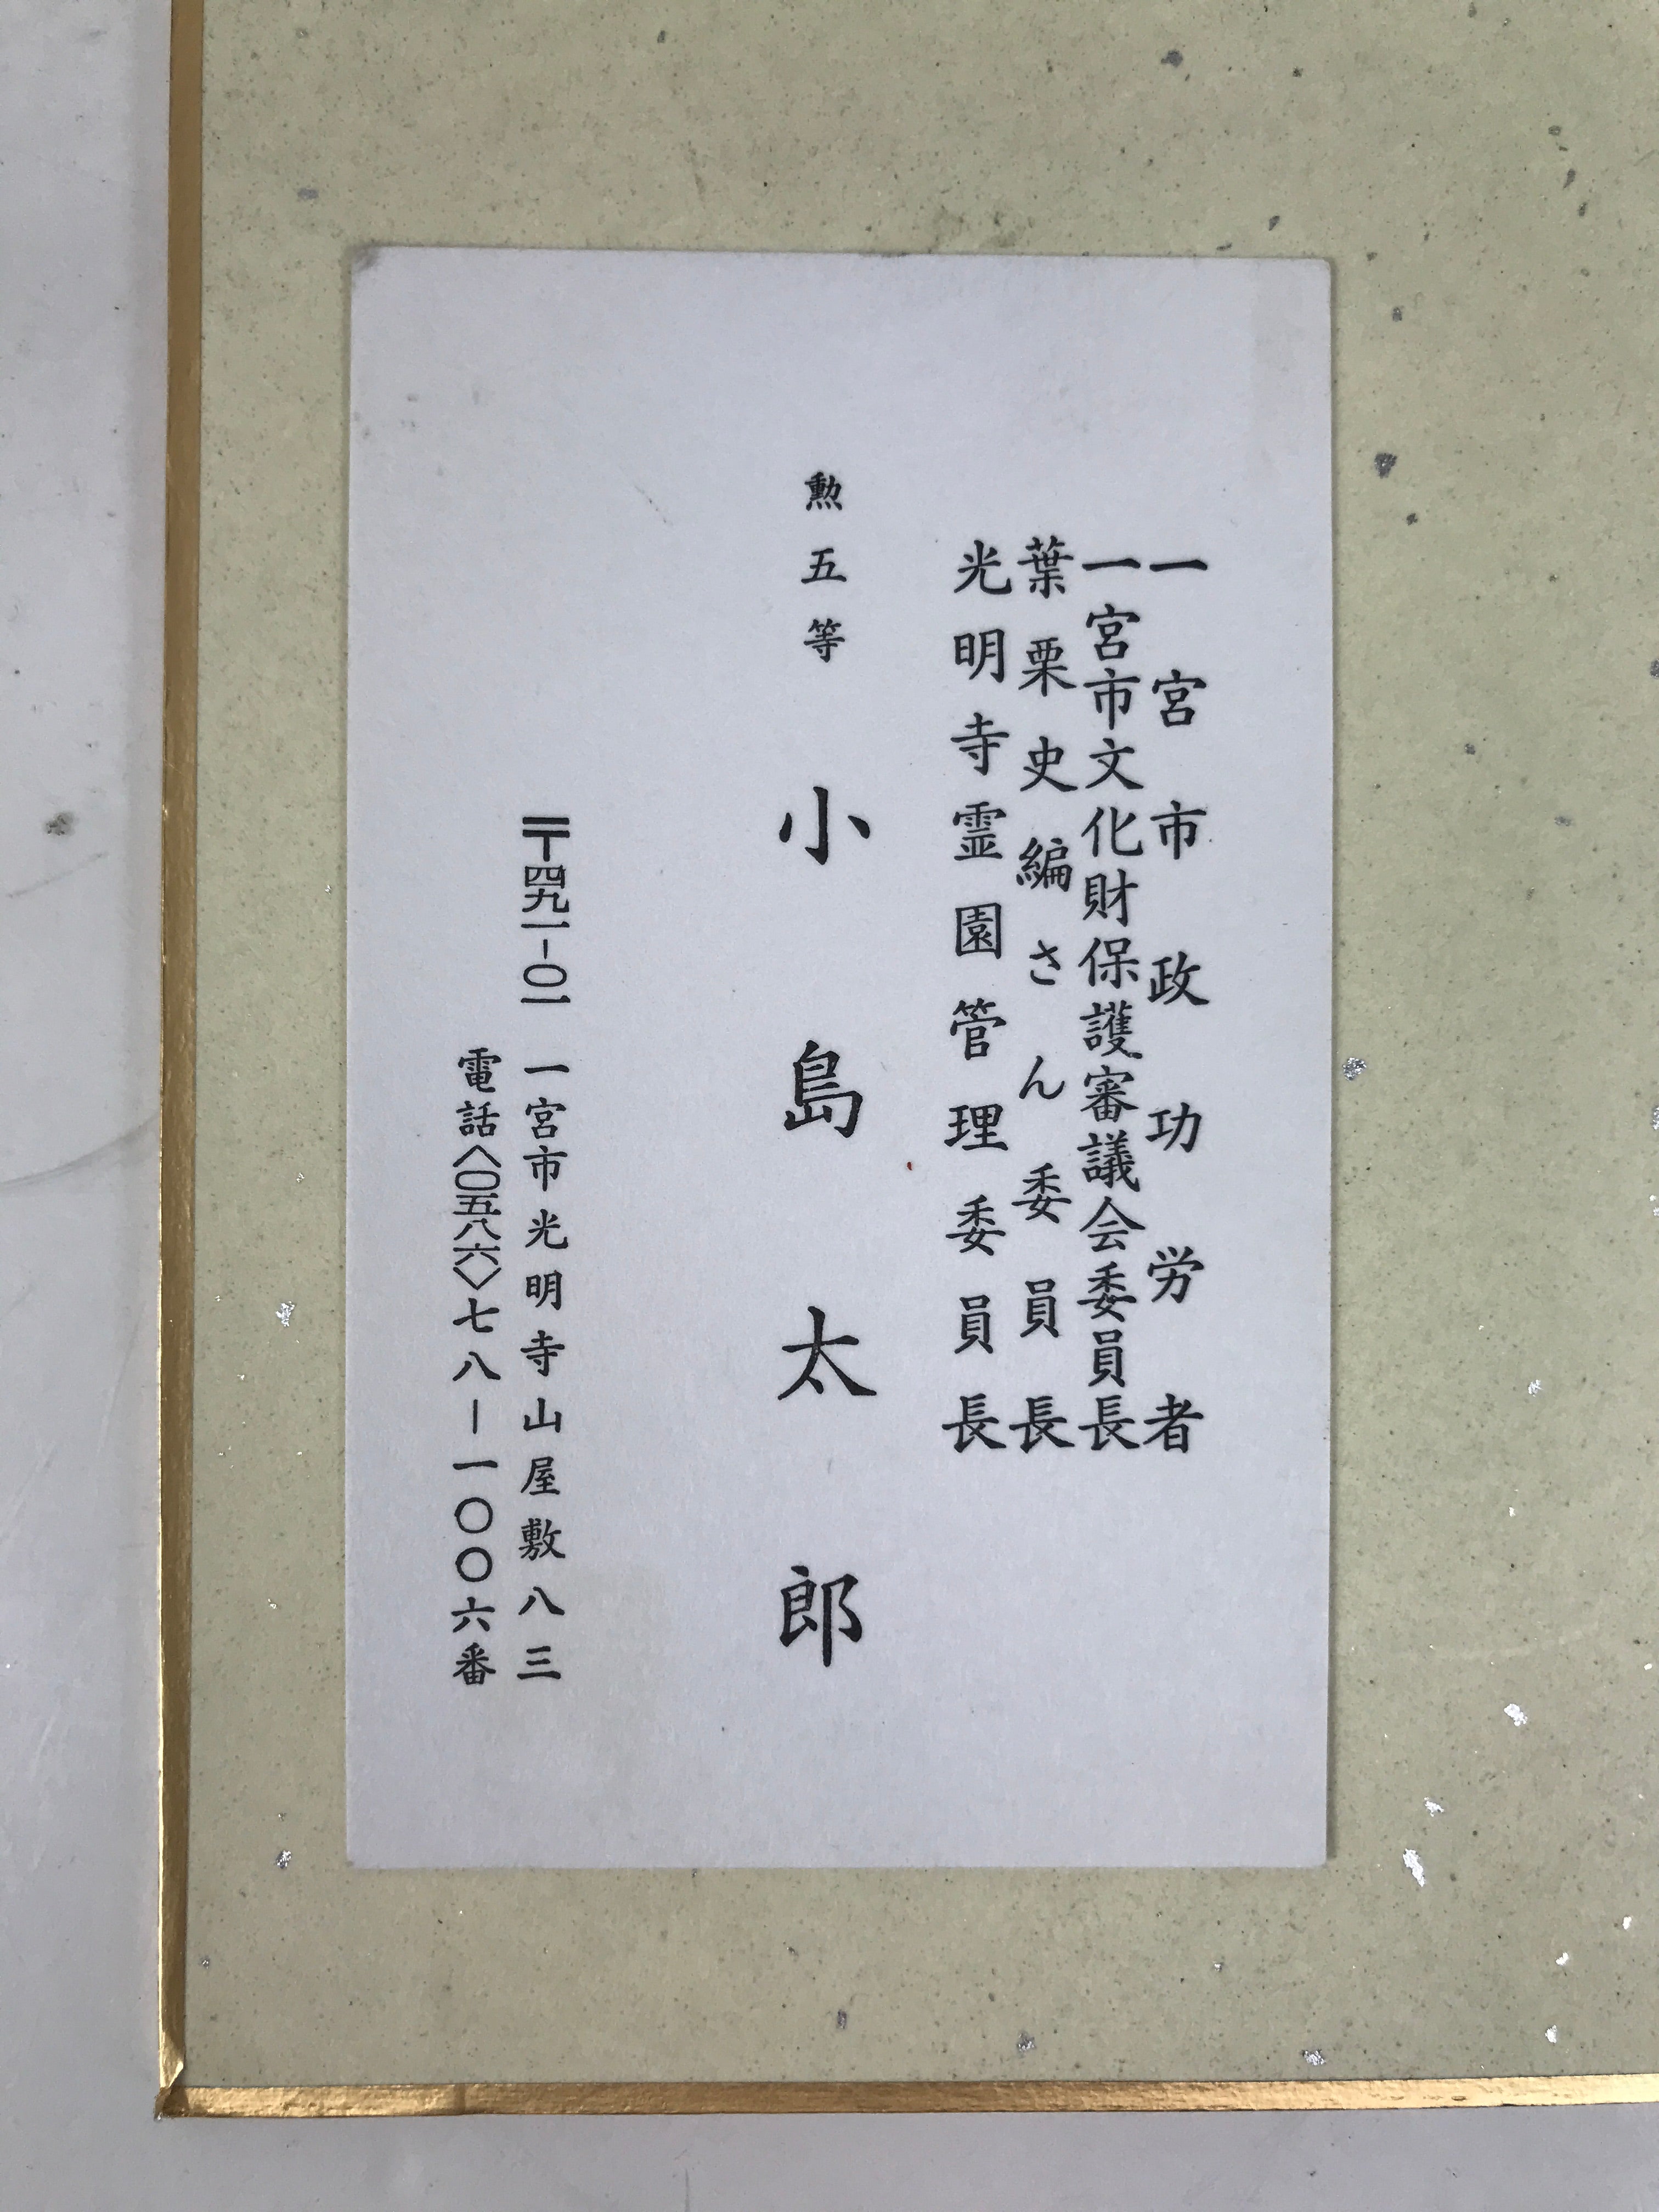 一宮市政功労者
一宮市文化財保護審議会委員長
葉栗史編さん委員長
光明寺霊園管理委員長
勲五等 小島太郎
〒四九一-〇一 一宮市光明寺山屋敷八三
電話〈〇五八六〉七八-一〇〇六番